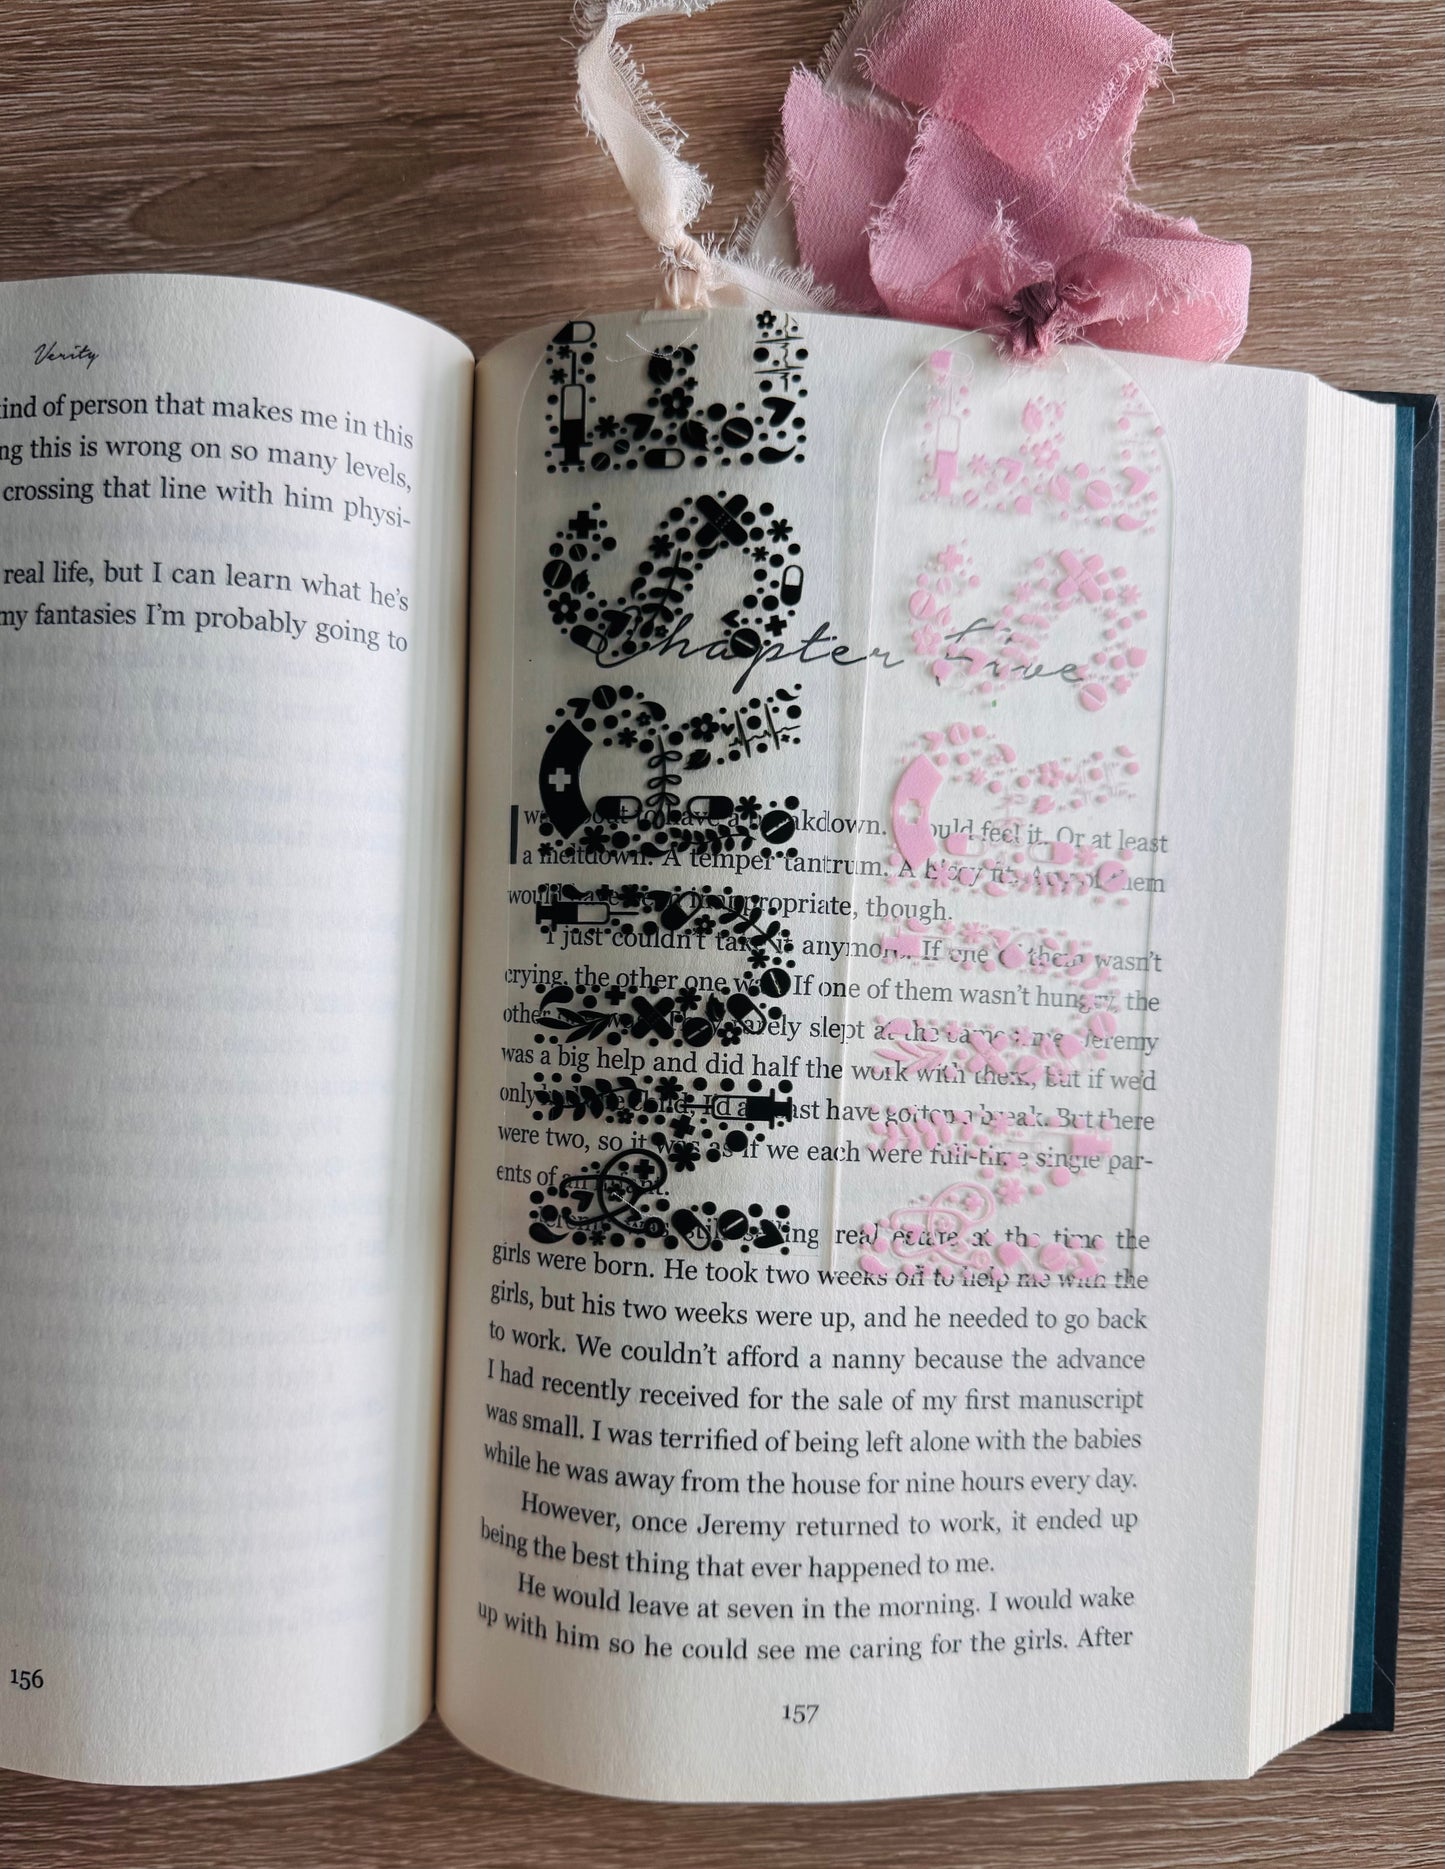 Verity
ind of person that makes me in this
ng this is wrong on so many levels,
crossing that line with him physi-
real life, but I can learn what he's
my fantasies I'm probably going to
156
NURSE
NURSE
Chapter Five
I was about to have a breakdown. I could feel it. Or at least
a meltdown. A temper tantrum. A hissy fit. Any of them
would have been inappropriate, though.
I just couldn't take it anymore. If one of them wasn't
crying, the other one was. If one of them wasn't hungry, the
other one was. They rarely slept at the same time. Jeremy
was a big help and did half the work with them, but if we'd
only had one child, I'd at least have gotten a break. But there
were two, so it was as if we each were full-time single par-
ents of an infant.
Jeremy was still selling real estate at the time the
girls were born. He took two weeks off to help me with the
girls, but his two weeks were up, and he needed to go back
to work. We couldn't afford a nanny because the advance
I had recently received for the sale of my first manuscript
was small. I was terrified of being left alone with the babies
while he was away from the house for nine hours every day.
However, once Jeremy returned to work, it ended up
being the best thing that ever happened to me.
He would leave at seven in the morning. I would wake
up with him so he could see me caring for the girls. After
157